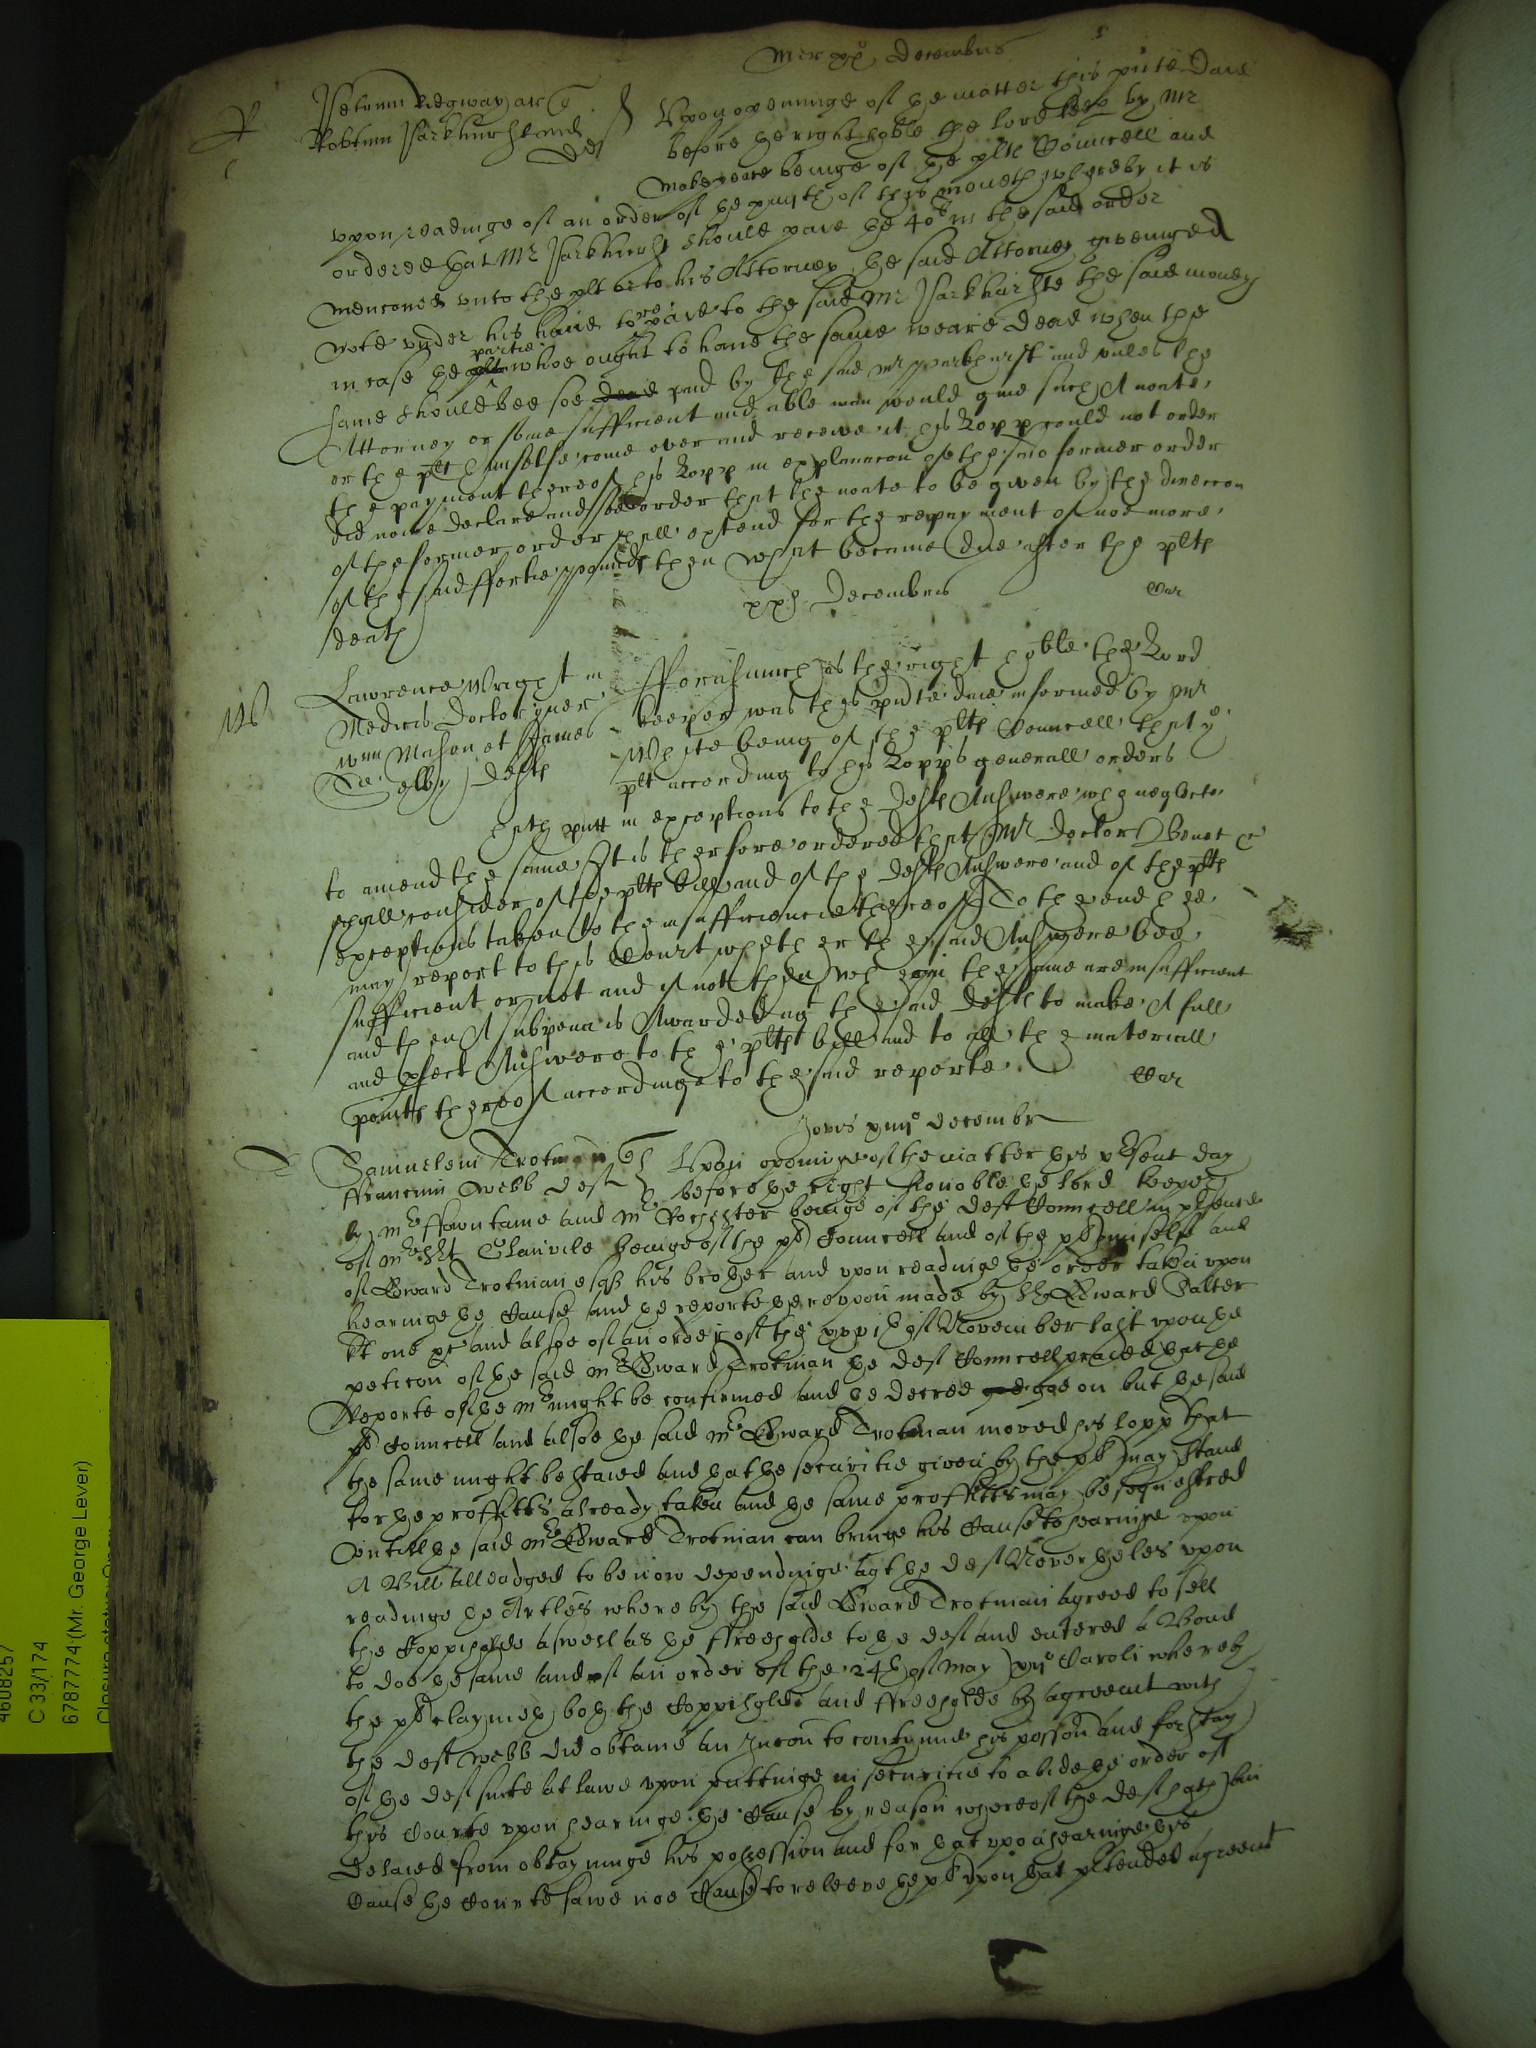 Mer xx Decembris
Petrum Ridgway ar quer
Robtum Parkhurst end
def
Upon openinge of the matter this pnte daie
before the right hoble the lord keep by Mr
beinge of the plts Councell and
upon readinge of an order of the of this moneth whereby it is
ordered that Mr Parkhurst should paie the 40 in the said order
mencioned unto the plt or to his Attorney the said Attorney giveinge A
note under his hand to repaie to the said Mr Parkhurste the said money
in case the partie whoe ought to have the same weare dead when the
same should bee soe paid by the said Mr Parkhurst and unles the
Attorney or some sufficient and able man would give such A noate
or the plt himselfe come over and receive it his Lopp could not order
the payment thereof his Lopp in explanacon of the said former order
did nowe declare and soe order that the noate to be given by the direccon
of the former order shall extend for the repayment of noe more
of the said ffortie pounds then what became due after the plts
death
xx Decembris
Lawrence Wright in
Medicis Doctor quer
Wm Mason et James
def
fforasmuch as the right hoble the Lord
keeper was this pnte daie informed by Mr
White being of the plts Councell that ye
plt according to his Lopps generall orders
hath putt in exceptions to the defts Answere who neglecte
to amend the same It is therfore ordered that Mr Doctor
shall consider of the plts bill and of the defts Answere and of the plts
exceptions taken to the insufficiencie thereof To the end hee
may report to this Court whether the said Answere bee
sufficient or not and if not then wherein the same are insufficient
and then A subpena is Awarded agt the said defts to make A full
and pfect Answere to the plts bill and to all the materiall
points thereof accordinge to the said reporte
Jovis Decembr
Samuelem Trotman quer
ffrancum Webb def
Upon openinge of the matter this psent day
before the right honoble the lord keeper
by Mr ffountaine and Mr Rochester beinge of the deft Councell in psence
of Mr Glanvile beinge of the plt Councell and of the plt himselfe and
of Edward Trotman esqr his brother and upon readinge the order taken upon
hearinge the Cause and the reporte thereupon made by Sr Edward Salter
kt one and alsoe of an order of the of November last upon the
peticon of the said Mr Edward Trotman the deft Councell praied that the
Reporte of the Mr might be confirmed and the decree goe on but the said
plt Councell and alsoe the said Mr Edward Trotman moved his lopp that
the same might be staied and that the securitie given by the plt may stand
for the proffitts already taken and the same proffitts may be sequestred
Untill the said Mr Edward Trotman can bringe his Cause to hearinge upon
A Bill alleadged to be now dependinge agt the deft Neverthelesse upon
readinge the Artles whereby the said Edward Trotman agreed to sell
the Coppiholde aswell as the ffreeholde to the deft and entered a Bond
to doe the same and of an order of the 24th of May Caroli whereby
the plt claymeth both the Coppiholde and ffreeholde by agreemt with
the deft Webb did obtaine an Iniuncon to contynue his posson and for stay
of the deft suite at lawe upon puttinge in securitie to abide the order of
this Courte upon hearinge the Cause by reason whereof the deft hath bin
delaied from obtayninge his possession and for that upon hearinge this
Cause the Courte sawe noe Cause to releeve the plt upon that ptended agreemt
4608257
C 33/174
6787774 (Mr. George Lever)